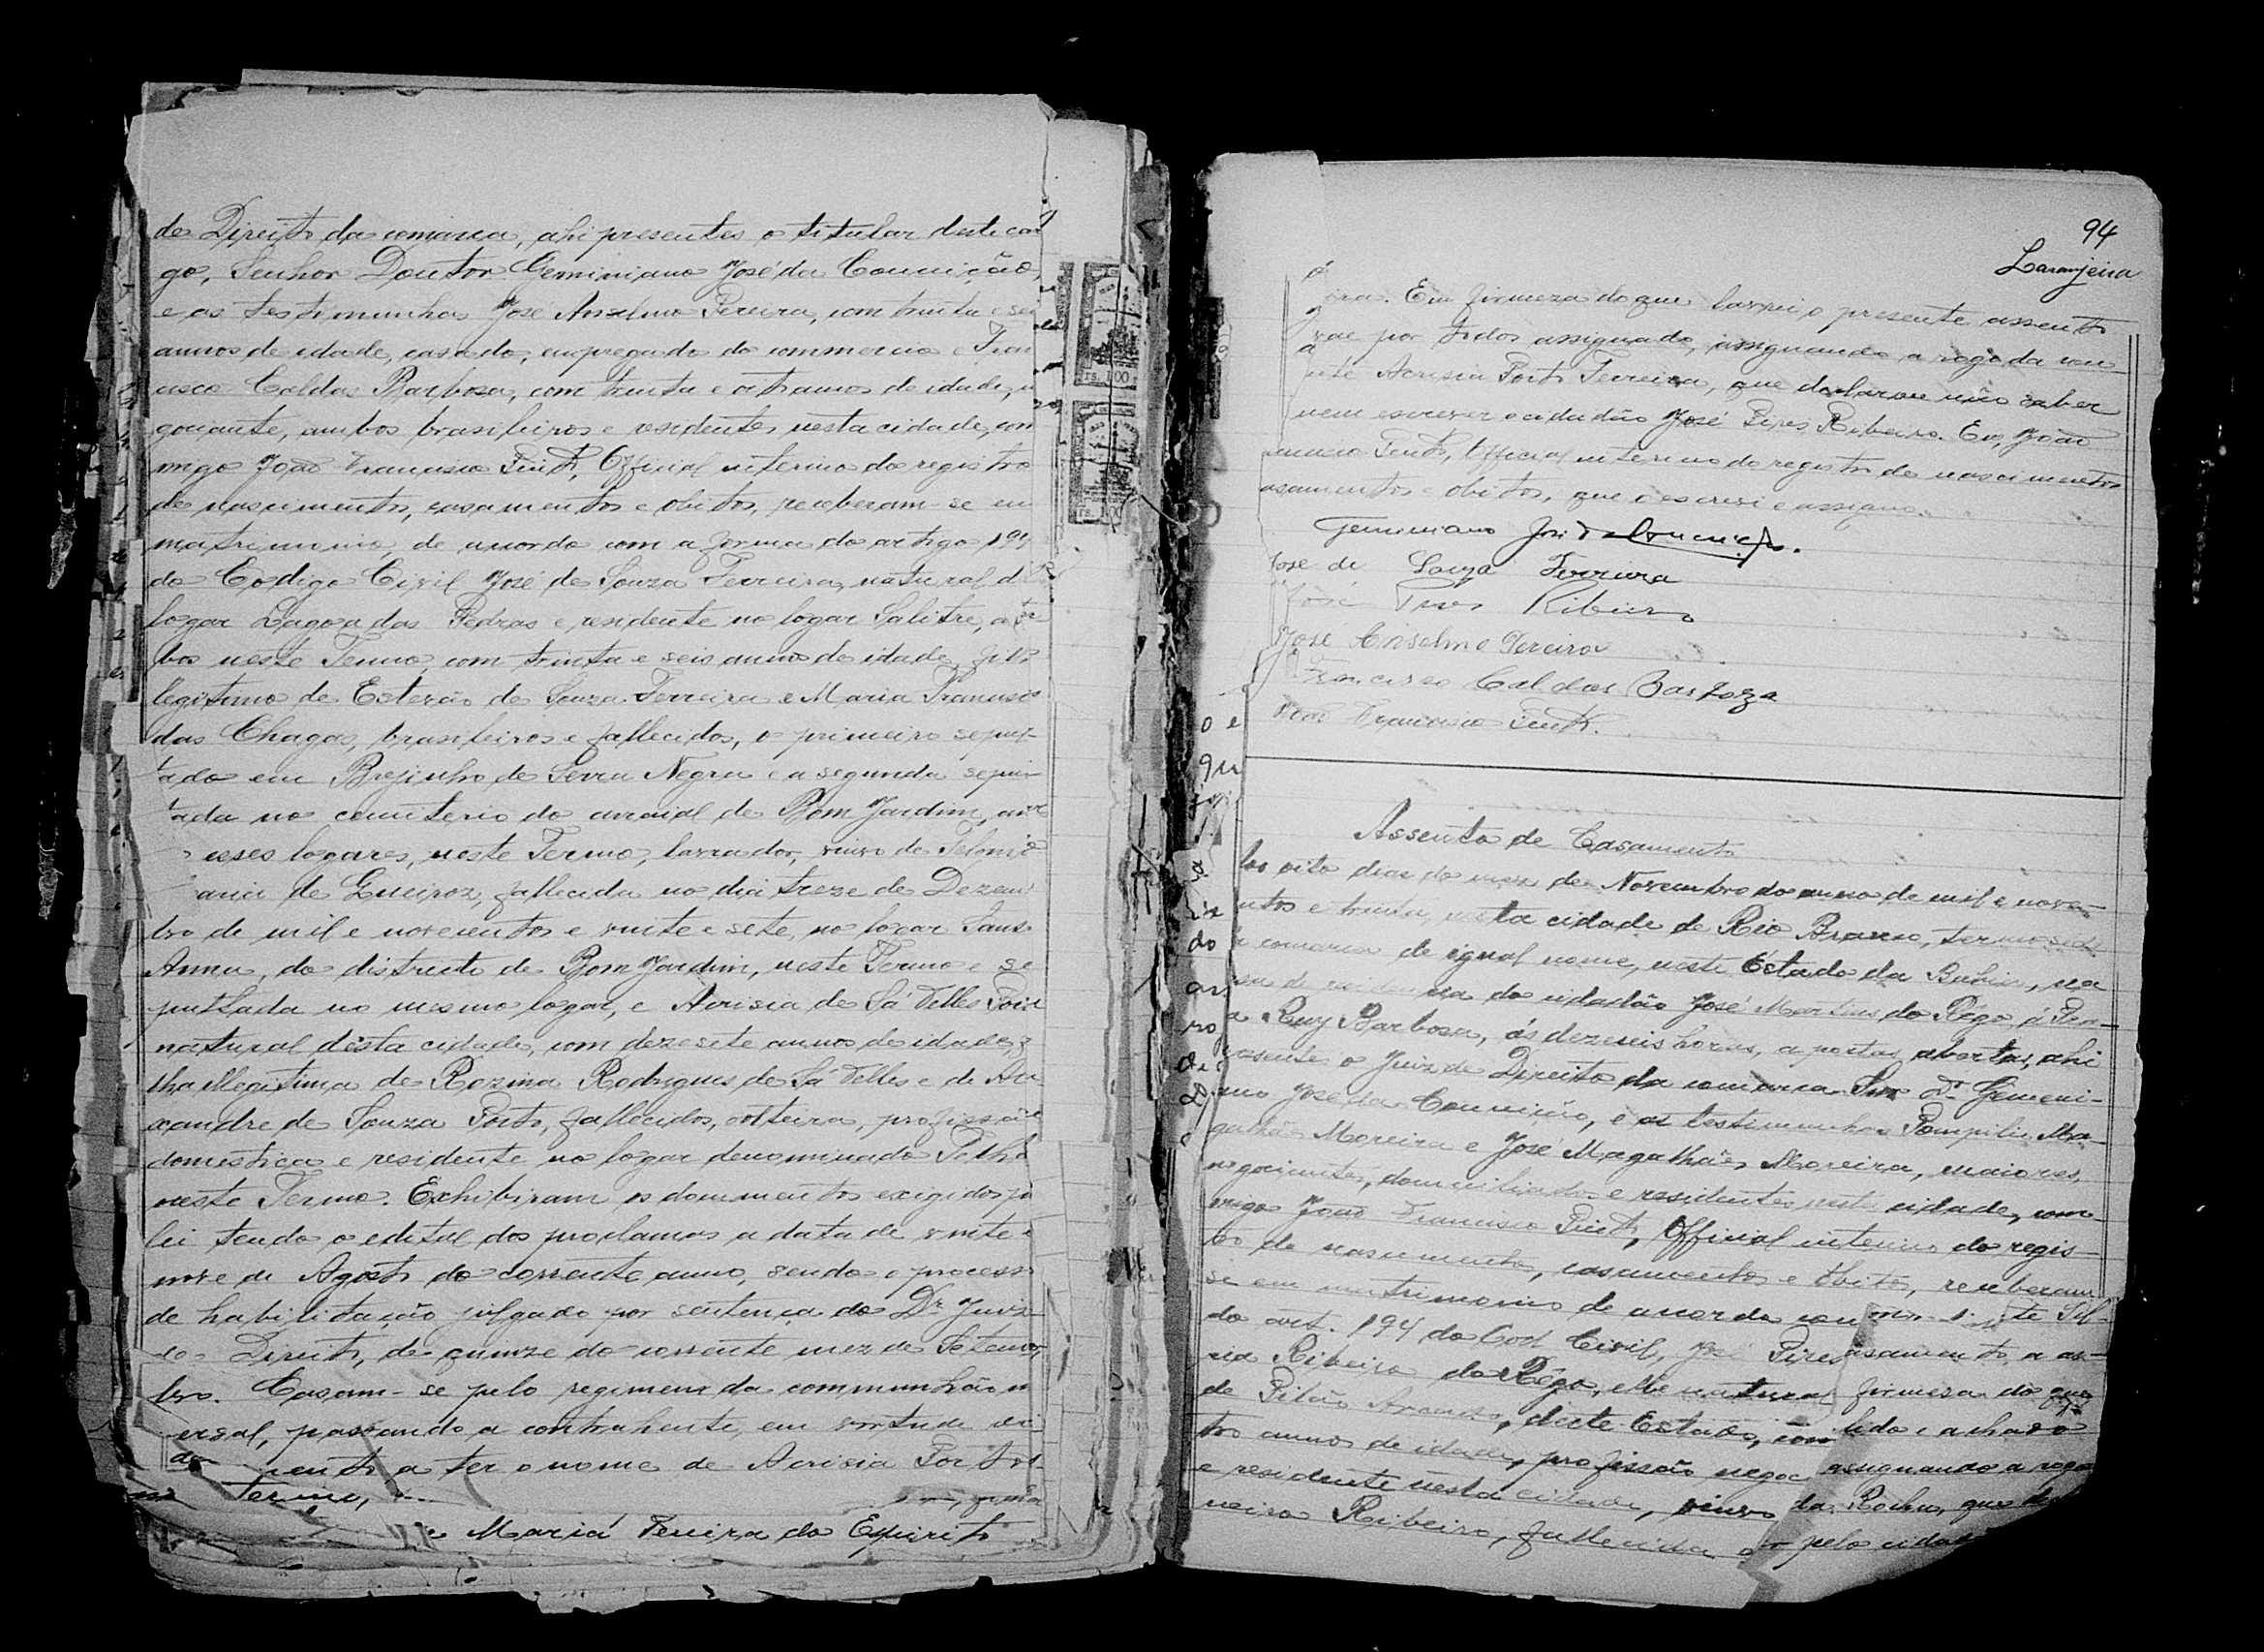 de Direito da comarca, ahi presentes o titular deste car
go, Senhor Doutor Geminiano José da Conceição,
e as testimunhas José Anselmo Pereira, com trinta e seis
annos de idade, casado, empregado do commercio e Fran
cisco Caldas Barbosa, com trinta e oito annos de idade, n
gociante, ambos brasileiros e residentes nesta cidade, com
migo João Francisco Pinto, Official interino do registro
de nascimentos, casamentos e obitos, receberam-se em
matrimonio, de accordo com a forma do artigo 194
do Codigo Civil José de Souza Ferreira, natural d
logar Lagoa das Pedras e residente no logar Salitre, a
bos neste Termo, com trinta e seis annos de idade, filho
legitimo de Estevão de Souza Ferreira e Maria Francisca
das Chagas, brasileiros e fallecidos, o primeiro sepul-
tado em Brejinho de Serra Negra e a segunda sepul-
tada no cemiterio do arraial de Bom Jardim,
esses logares, neste Termo, lavrador, viuvo de
de Queiroz, fallecida no dia treze de Dezem
bro de mil e novecentos e vinte e sete, no logar Sant
Anna, do districto de Bom Jardim, neste Termo e se
pultada no mesmo logar, e Acrisia de Sá Telles Porto
natural desta cidade, com dezesete annos de idade, f
lha illegitima de Rozina Rodrigues de Sá Telles e de Ale
xandre de Souza Porto, fallecidos, solteira, profissão
domestica e residente no logar denominado
neste Termo. Exhibiram os documentos exigidos p
lei tendo o edital dos proclamas a data de vinte e
nove de Agosto do corrente anno, sendo o processo
de habilitação julgado por sentença do Dr. Juiz
de Direito, de quinze do corrente mez de Setem
bro. Casam-se pelo regimen da communhão u
ersal, passando a contrahente, em virtude
do mento, a ter o nome de Acrisia Porto
Termo,
Maria Pereira do Espirito
94
Laranjeira
ira. Em firmeza do que lavrei o presente assento
vae por todos assignado, assignando a rogo da con
nte Acrisia Porto Ferreira, que declarou não saber
nem escrever o cidadão José Pires Ribeiro. Eu, João
ancisco Pinto, Official interino do registro de nascimentos
asamentos e obitos, que o escrevi e assigno.
Geminiano José da Conceição.
José de Souza Ferreira
José Pires Ribeiro
José Anselmo Pereira
Francisco Caldas Barboza
João Francisco Pinto.
Assento de Casamento
Aos oito dias do mez de Novembro do anno de mil e nove-
ntos e trinta, nesta cidade de Rio Branco, termo sede
comarca de igual nome, neste Estado da Bahia, na
sa de residencia do cidadão José Martins do Rêgo, á Pra-
a Ruy Barbosa, ás dezeseis horas, a portas abertas, ahi
resente o Juiz de Direito da comarca Snr. Dr. Gemini-
ano José da Conceição, e as testimunhas Pompilio Ma-
galhães Moreira e José Magalhães Moreira, maiores,
negociantes, domiciliados e residentes nesta cidade, com-
migo João Francisco Pinto, Official interino do regis-
tro de nascimento, casamentos e obitos, receberam
se em matrimonio de accordo com
do art. 194 do Cod Civil, José Pires asamento, a as-
ria Ribeiro do Rêgo, elle natural firmeza do que
de Pilão Arcado, deste Estado, com lido e achado
tro annos de idade, profissão negoc assignando a rogo
e residente nesta cidade, viuvo da Rocha, que
neira Ribeiro, fallecida pelo cidad